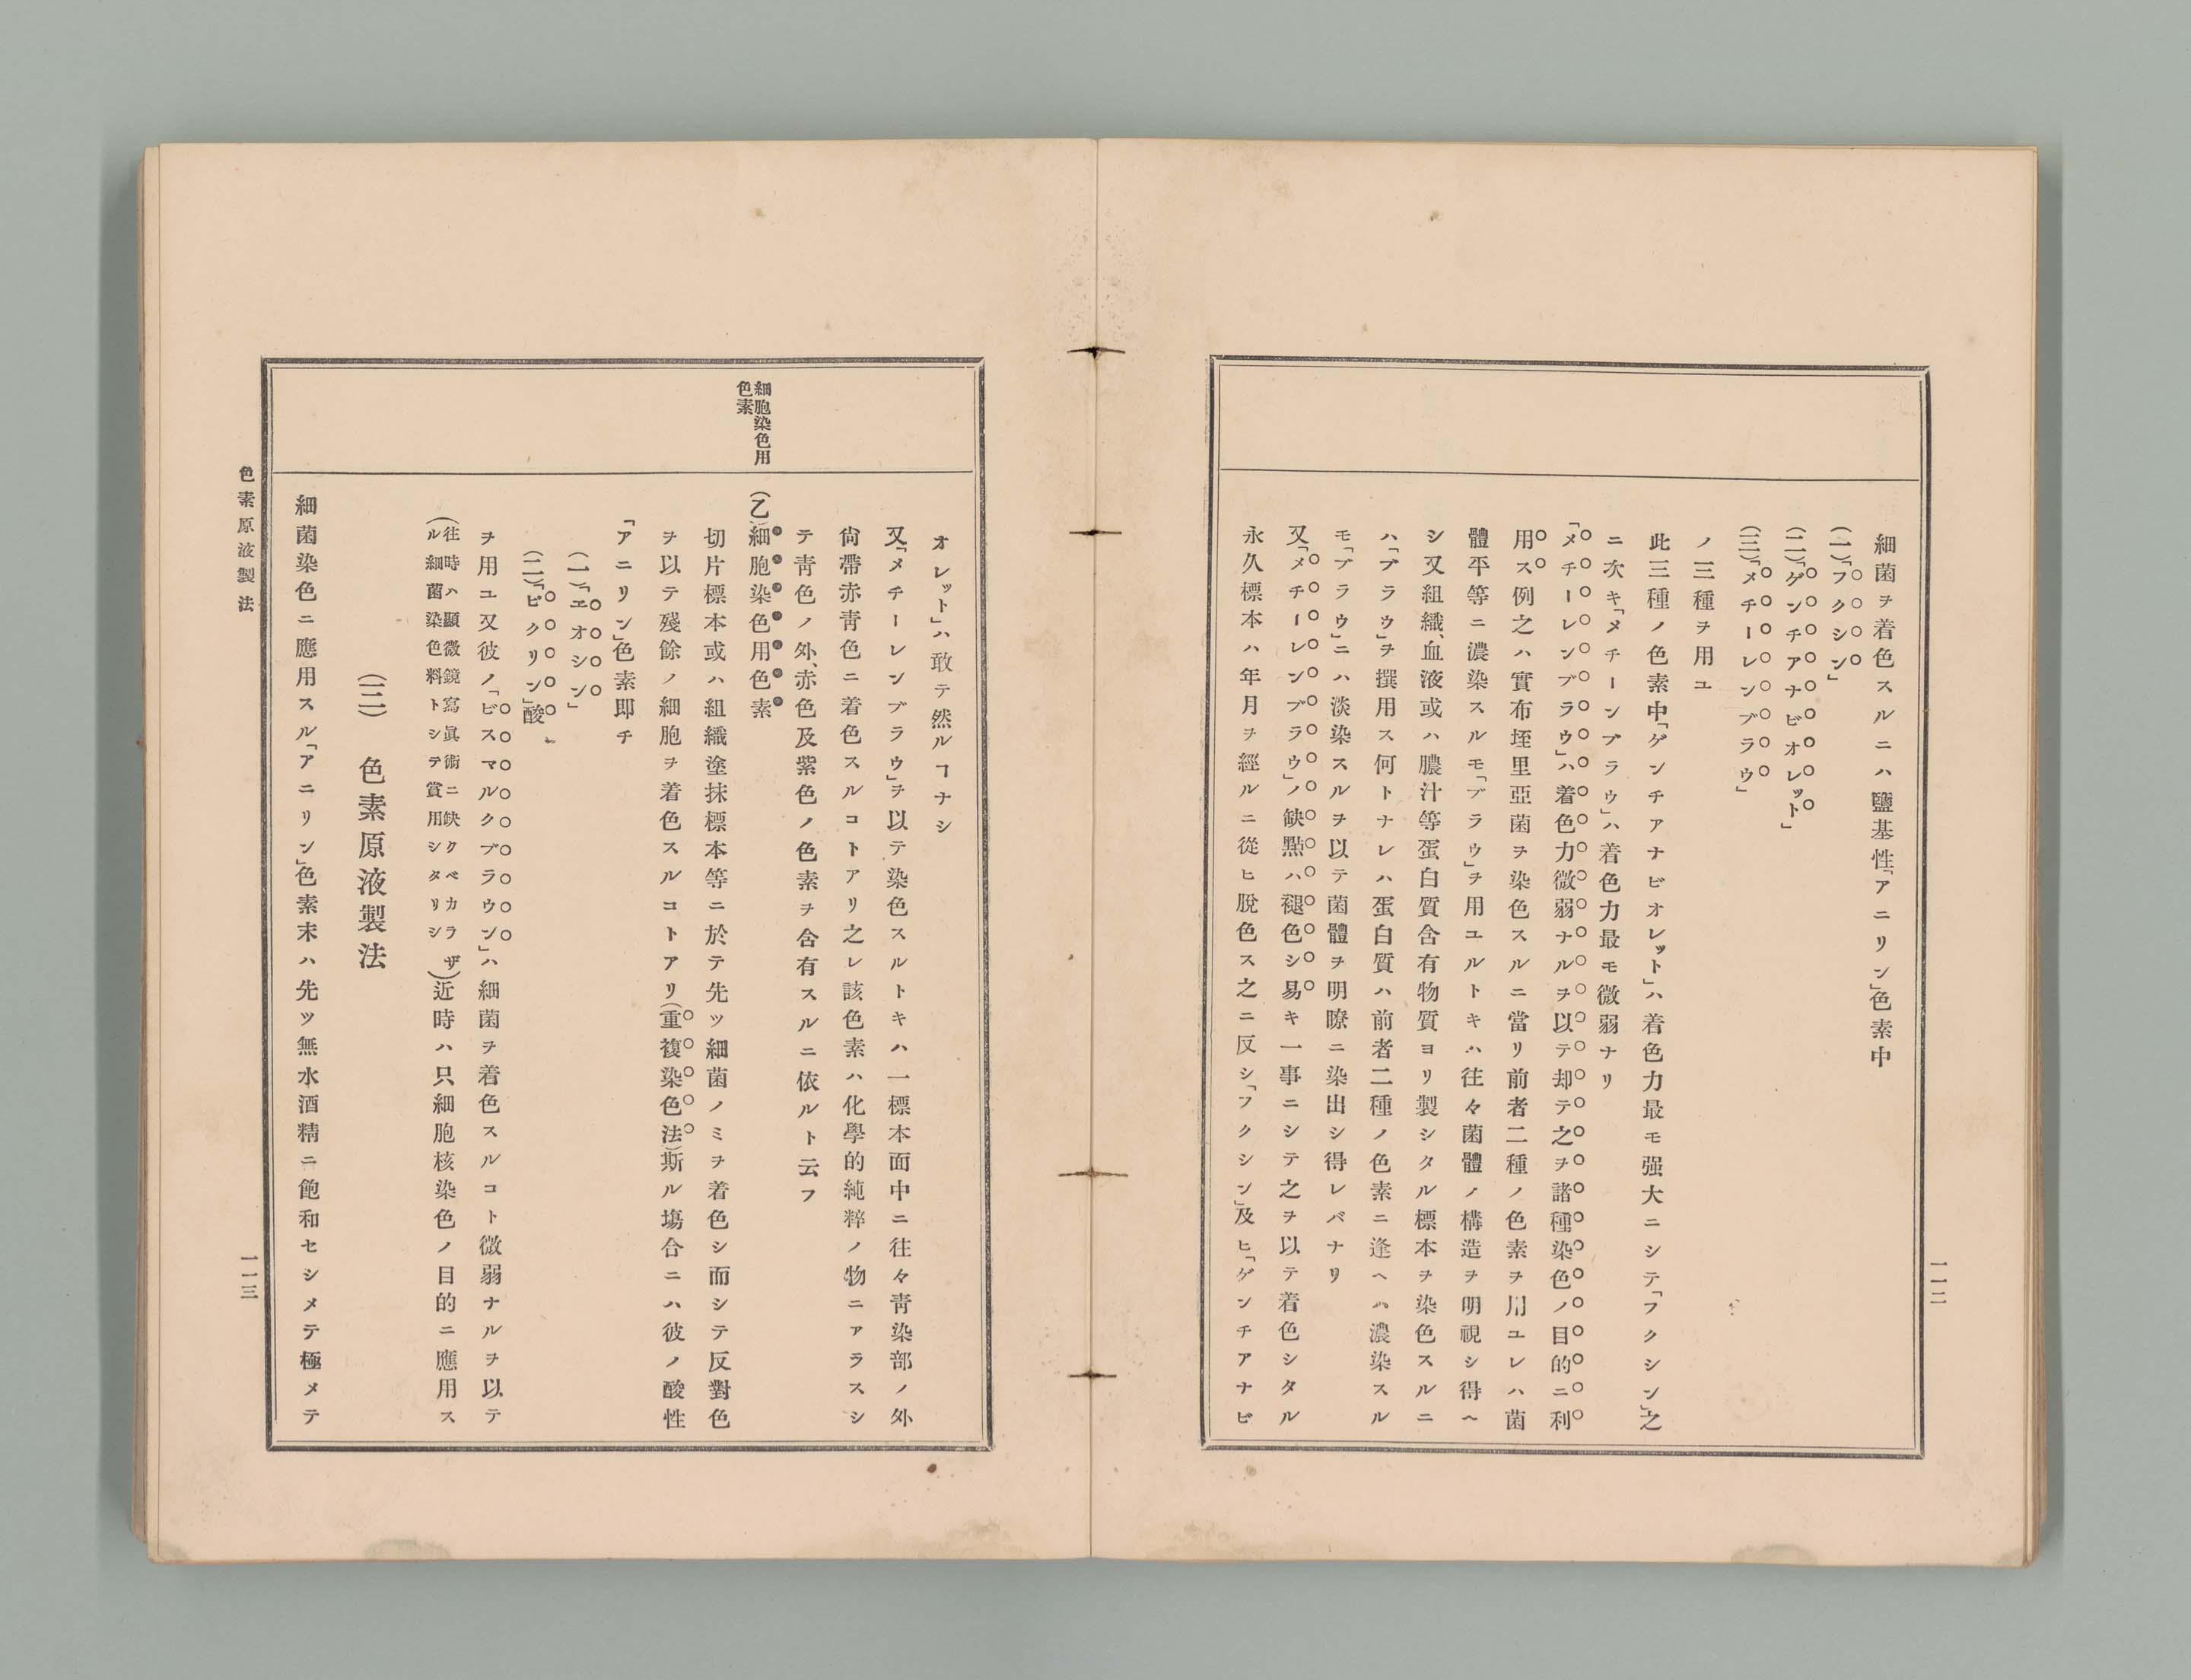 細菌ヲ着色スルニハ鹽基性「アニリン」色素中
(一)「フクシン」
(二)「ゲンチアナビオレット」
(三)「メチーレンブラウ」
ノ三種ヲ用ユ
此三種ノ色素中「ゲンチアナビオレット」ハ着色力最モ强大ニシテ「フクシン」之
ニ次キ「メチーンブラウ」ハ着色力最モ微弱ナリ
「メチーレンブラウ」ハ着色力微弱ナルヲ以テ却テ之ヲ諸種染色ノ目的ニ利
用ス例之ハ實布垤里亞菌ヲ染色スルニ當リ前者二種ノ色素ヲ用ユレハ菌
體平等ニ濃染スルモ「ブラウ」ヲ用ユルトキハ往々菌體ノ構造ヲ明視シ得ヘ
シ又組織、血液或ハ膿汁等蛋白質含有物質ヨリ製シタル標本ヲ染色スルニ
ハ「ブラウ」ヲ撰用ス何トナレハ蛋白質ハ前者二種ノ色素ニ逢ヘハ濃染スル
モ「ブラウ」ニハ淡染スルヲ以テ菌體ヲ明瞭ニ染出シ得レバナリ
又「メチーレンブラウ」ノ缺點ハ褪色シ易キ一事ニシテ之ヲ以テ着色シタル
永久標本ハ年月ヲ經ルニ從ヒ脫色ス之ニ反シ「フクシン」及ヒ「ゲンチアナビ
一一二
オレット」ハ敢テ然ルヿナシ
又「メチーレンブラウ」ヲ以テ染色スルトキハ一標本面中ニ往々靑染部ノ外
尙帶赤靑色ニ着色スルコトアリ之レ該色素ハ化學的純粹ノ物ニアラスシ
テ靑色ノ外、赤色及紫色ノ色素ヲ含有スルニ依ルト云フ
細胞染色用
色素
(乙)細胞染色用色素
切片標本或ハ組織塗抹標本等ニ於テ先ツ細菌ノミヲ着色シ而シテ反對色
ヲ以テ殘餘ノ細胞ヲ着色スルコトアリ(重複染色法)斯ル塲合ニハ彼ノ酸性
「アニリン」色素即チ
(一)「エオシン」
(二)「ピクリン」酸
ヲ用ユ又彼ノ「ビスマルクブラウン」ハ細菌ヲ着色スルコト微弱ナルヲ以テ
(往時ハ顯微鏡寫眞術ニ缺クベカラザ
ル細菌染色料トシテ賞用シタリシ)近時ハ只細胞核染色ノ目的ニ應用ス
(二) 色素原液製法
細菌染色ニ應用スル「アニリン」色素末ハ先ツ無水酒精ニ飽和セシメテ極メテ
色素原液製法
一一三